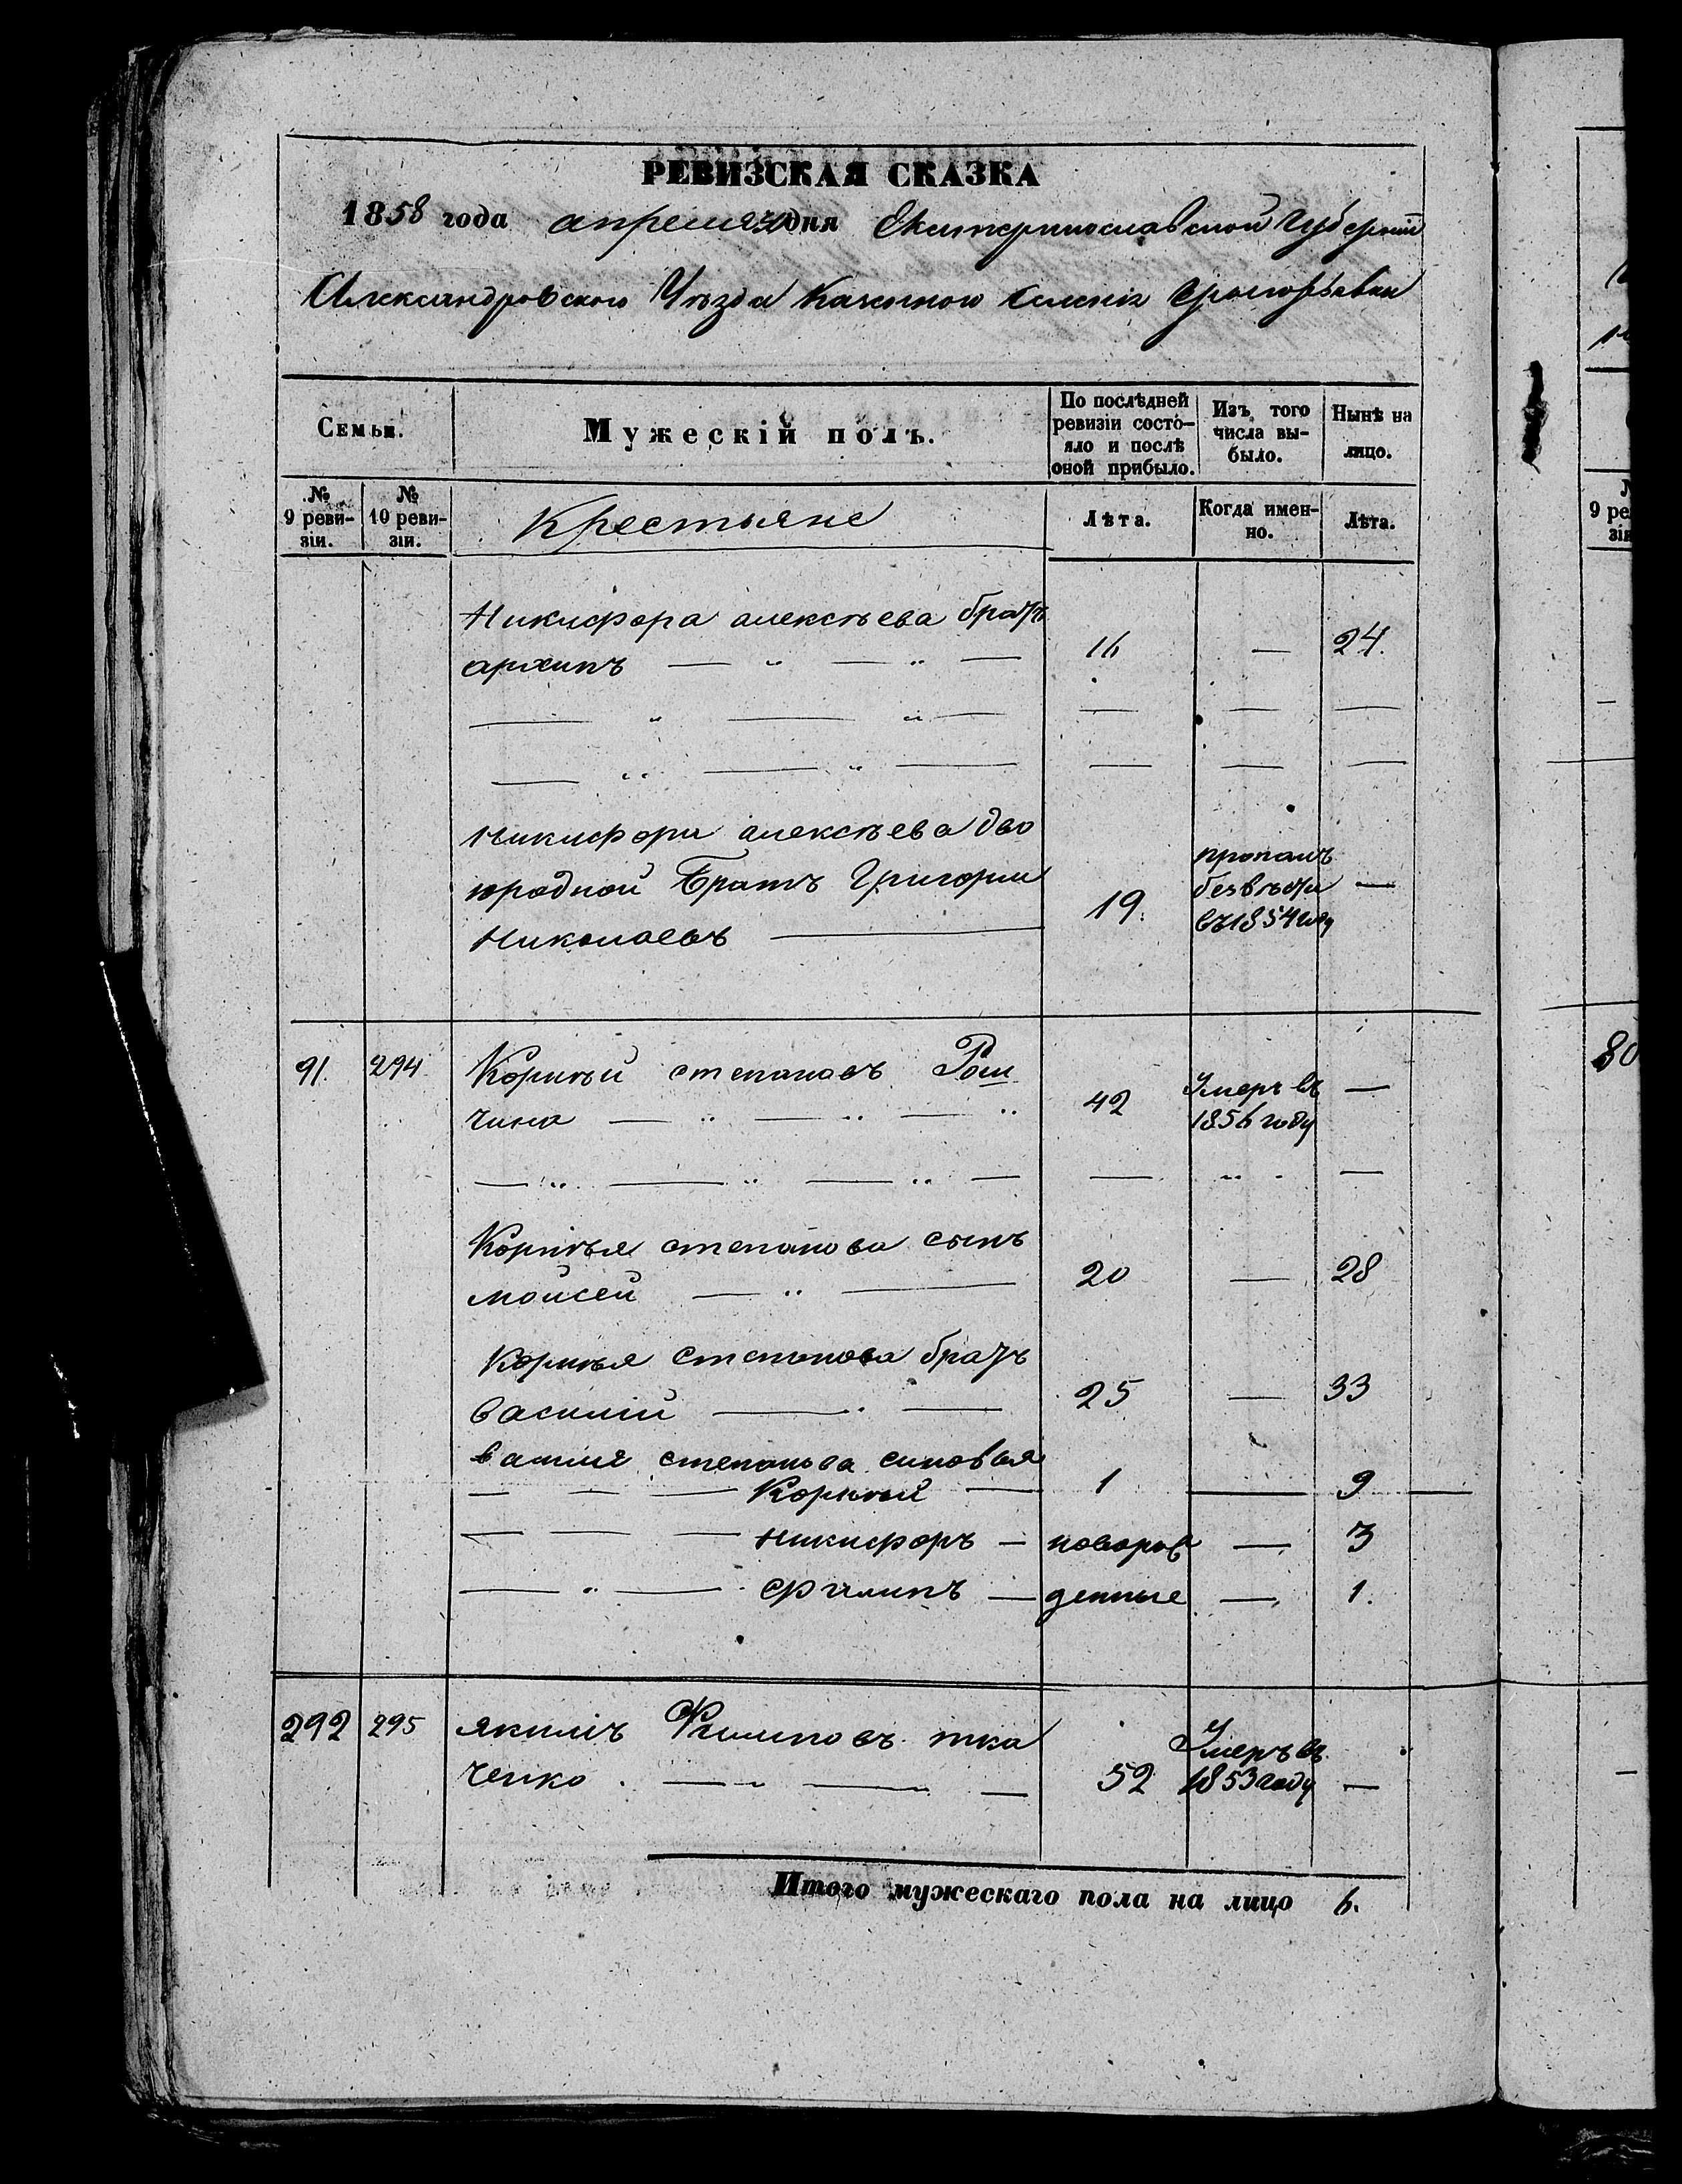 РЕВИЗСКАЯ СКАЗКА
1858 года апреля дня Екатеринославской Губернии
Александровского Уѣзда Казенного Селенія Григорьевки
Семьи.
Мужескій полъ.
По послѣдней
ревизіи состо-
яло и послѣ
оной прибыло.
Изъ того
числа вы-
было.
Нынѣ на
лицо.
№
9 реви-
зіи.
№
10 реви-
зіи.
Крестьяне
Лѣта.
Когда имен-
но.
Лѣта.
Никифора алексѣева братъ
архипъ 16 — 24.
Никифора алексѣева дво
юродной Братъ Григории
Николаевъ 19. пропалъ
безвѣсти
въ 1854 году —
91. 294 Корнѣй степановъ Рош
чина 42 Умеръ въ
1856 году —
Корнѣя степанова сынъ
моисей 20 — 28
Корнѣя степанова братъ
василій 25 — 33
василія степанова синовья
Корнѣй 1 — 9
Никифоръ — новорож — 3
Филипъ — денные — 1.
292 295 якимъ Филиповъ тка
ченко. 52 Умеръ въ
1853 году —
Итого мужескаго пола на лицо 6.
9 ре
зі
80